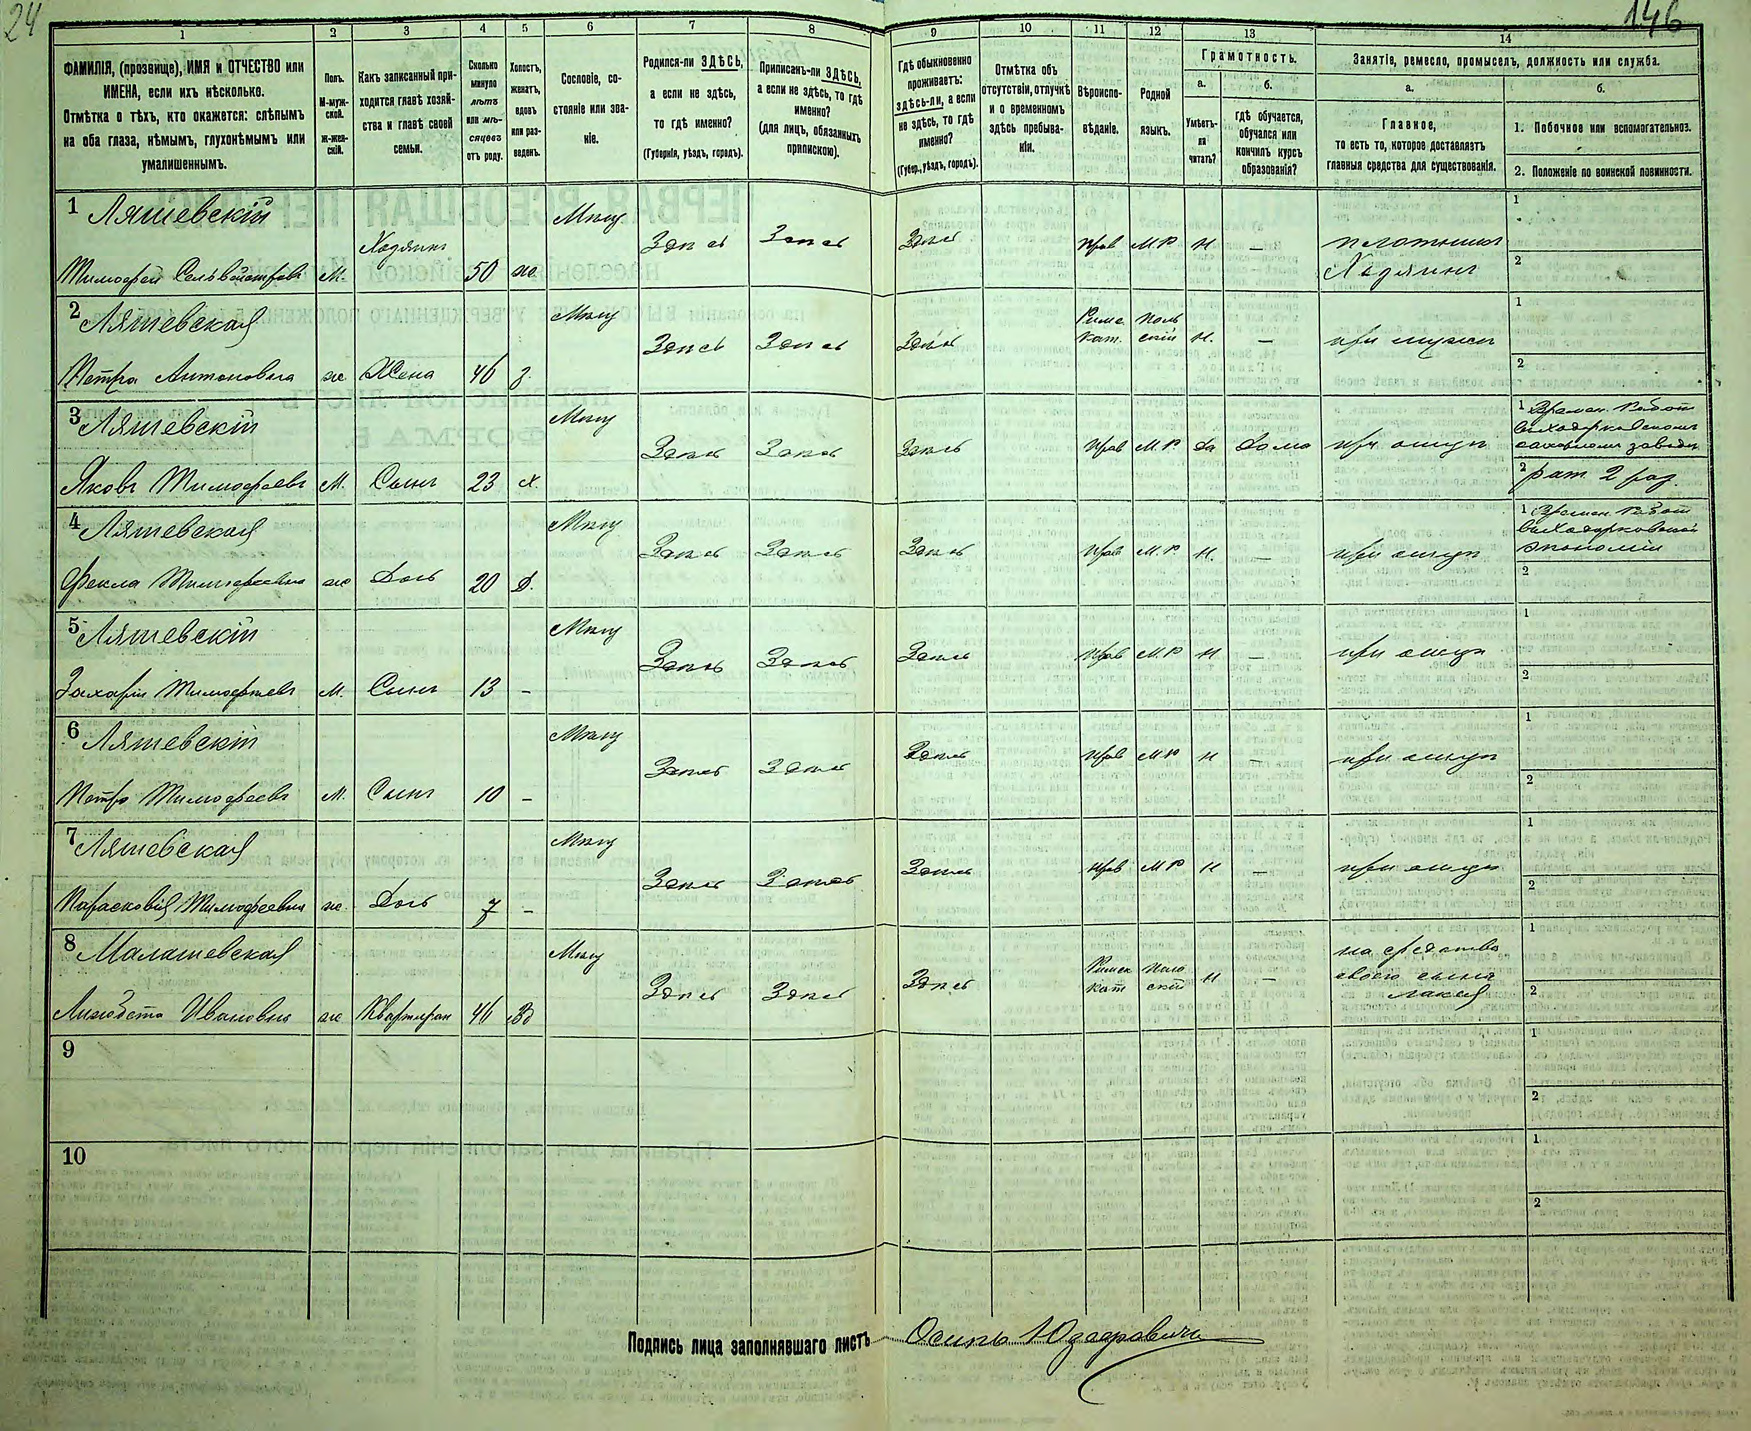 24
146
1
2
3
4
5
6
7
8
9
10
11
12
13
14
ФАМИЛІЯ, (прозвище), ИМЯ и ОТЧЕСТВО или
ИМЕНА, если ихъ нѣсколько.
Отмѣтка о тѣхъ, кто окажется: слѣпымъ
на оба глаза, нѣмымъ, глухонѣмымъ или
умалишеннымъ.
Полъ.
М-муж-
ской.
Ж-жен-
скій.
Какъ записанный при-
ходится главѣ хозяй-
ства и главѣ своей
семьи.
Сколько
минуло
лѣтъ
или мѣ-
сяцевъ
отъ роду.
Холостъ,
женатъ,
вдовъ
или раз-
веденъ.
Сословіе, со-
стояніе или зва-
ніе.
Родился-ли ЗДѢСЬ,
а если не здѣсь,
то гдѣ именно?
(Губернія, уѣздъ, городъ).
Приписанъ-ли ЗДѢСЬ,
а если не здѣсь, то гдѣ
именно?
(для лицъ, обязанныхъ
припискою).
Гдѣ обыкновенно
проживаетъ:
здѣсь-ли, а если
не здѣсь, то гдѣ
именно?
(Губер., уѣздъ, городъ).
Отмѣтка объ
отсутствіи, отлучкѣ
и о временномъ
здѣсь пребыва-
ніи.
Вѣроиспо-
вѣданіе.
Родной
языкъ.
Грамотность.
а.
Умѣетъ-
ли
читать?
б.
гдѣ обучается,
обучался или
кончилъ курсъ
образованія?
Занятіе, ремесло, промыселъ, должность или служба.
а.
Главное,
то есть то, которое доставляетъ
главныя средства для существованія.
б.
1. Побочное или вспомогательное.
2. Положеніе по воинской повинности.
1 Ляшевскій Мѣщ
Хозяинъ Здѣсь Здѣсь Здѣсь Прав М Р Н — плотникъ
Тимофей Сельвестровъ М. 50 ж. Хозяинъ
2 Ляшевская Мѣщ
Здѣсь Здѣсь Здѣсь Римс Кат. Поль скій Н. — при мужѣ
Петра Антоновна ж Жена 46 з.
3 Ляшевскій Мѣщ
Здѣсь Здѣсь Здѣсь Прав М. Р. Да Дома при отцѣ
1 Времен. Работ
въ Ходорковскомъ
сахарномъ заводѣ
2 рат. 2 раз.
Яковъ Тимофеевъ М. Сынъ 23 х.
4 Ляшевская Мѣщ
Здѣсь Здѣсь Здѣсь Прав М. Р Н. — при отцѣ
1 Времен. Работ
въ Ходорковской
экономіи
2
Фекла Тимофеевна ж Дочь 20 д.
5 Ляшевскій Мѣщ
Здѣсь Здѣсь Здѣсь Прав М Р Н — при отцѣ
Захарій Тимофеевъ М. Сынъ 13 –
6 Ляшевскій Мѣщ
Здѣсь Здѣсь Здѣсь Прав М Р Н — при отцѣ
Петръ Тимофеевъ М. Сынъ 10 –
7 Ляшевская Мѣщ
Здѣсь Здѣсь Здѣсь Прав М Р Н — при отцѣ
Парасковія Тимофеевна ж. Дочь 7 –
8 Малашевская Мѣщ
Здѣсь Здѣсь Здѣсь Римск Кат Поль скій Н — на средства
своего сына
лакея
Лизабета Ивановна ж Квартиран 46 Вд
9
10
Подпись лица заполнявшаго листъ Осипъ